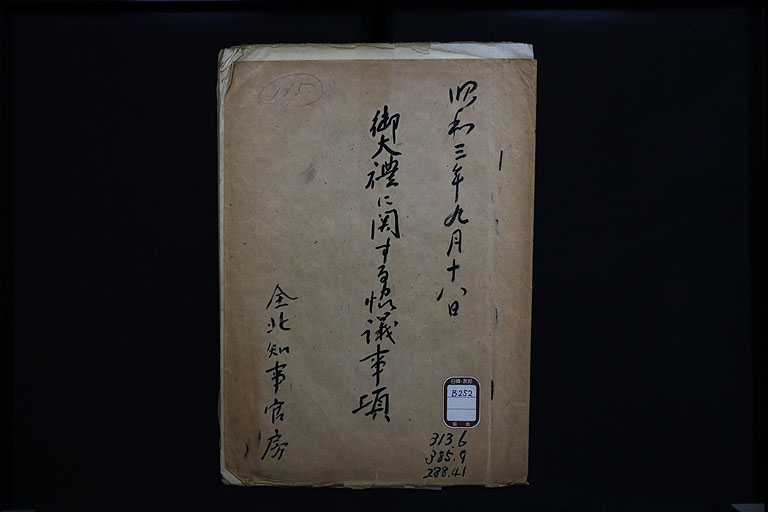 昭和三年九月十八日
御大禮に関する協議事項
全北知事官房
145
日韓・友邦
B252
313.6
385.9
288.41